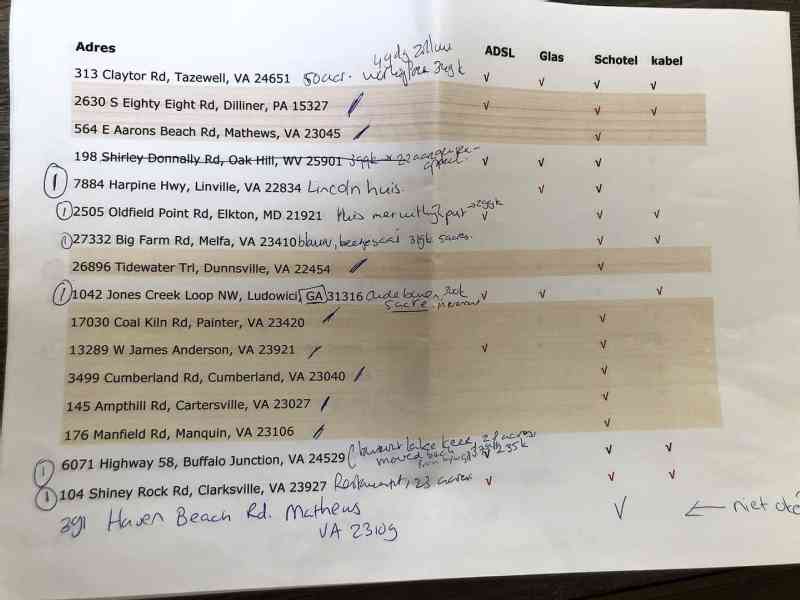 Adres ADSL Glas Schotel kabel
313 Claytor Rd, Tazewell, VA 24651 50acr. √ √ √ √
2630 S Eighty Eight Rd, Dilliner, PA 15327 √ √ √
564 E Aarons Beach Rd, Mathews, VA 23045 √
198 Shirley Donnally Rd, Oak Hill, WV 25901 399k √ √ √
7884 Harpine Hwy, Linville, VA 22834 Lincoln huis. √ √
2505 Oldfield Point Rd, Elkton, MD 21921 299k √ √ √
27332 Big Farm Rd, Melfa, VA 23410 5acres. √ √
26896 Tidewater Trl, Dunnsville, VA 22454 √
1042 Jones Creek Loop NW, Ludowici, GA 31316 5acre √ √ √
17030 Coal Kiln Rd, Painter, VA 23420 √
13289 W James Anderson, VA 23921 √ √
3499 Cumberland Rd, Cumberland, VA 23040 √
145 Ampthill Rd, Cartersville, VA 23027 √
176 Manfield Rd, Manquin, VA 23106 √
6071 Highway 58, Buffalo Junction, VA 24529 moved back 235k √ √ √
104 Shiney Rock Rd, Clarksville, VA 23927 Restaurant, 23 acres √ √ √
391 Haven Beach Rd. Mathews √ ← niet
VA 23109